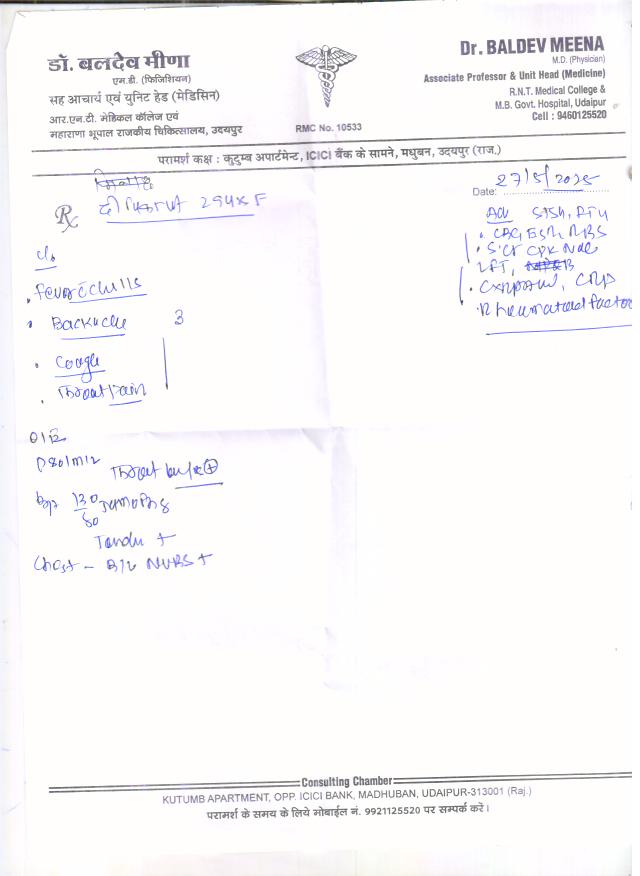 डॉ. बलदेव मीणा
एम.डी. (फिजिशियन)
सह आचार्य एवं युनिट हेड (मेडिसिन)
आर.एन.टी. मेडिकल कॉलेज एवं
महाराणा भूपाल राजकीय चिकित्सालय, उदयपुर
RMC No. 10533
Dr. BALDEV MEENA
M.D. (Physician)
Associate Professor & Unit Head (Medicine)
R.N.T. Medical College &
M.B. Govt. Hospital, Udaipur
Cell : 9460125520
परामर्श कक्ष : कुटुम्ब अपार्टमेन्ट, ICICI बैंक के सामने, मधुबन, उदयपुर (राज.)
Date: 27/5/2025
Rx
Adv
CBC ESR RBS
S.Cr CPK
LFT,
CRP
Rheumatoid factor
c/o
Fever c chills
Backache 3
Cough
Throat Pain
O/E
P 80/min
Throat
Bp 130/80
Chest - B/L NVBS +
Consulting Chamber
KUTUMB APARTMENT, OPP. ICICI BANK, MADHUBAN, UDAIPUR-313001 (Raj.)
परामर्श के समय के लिये मोबाईल नं. 9921125520 पर सम्पर्क करें।